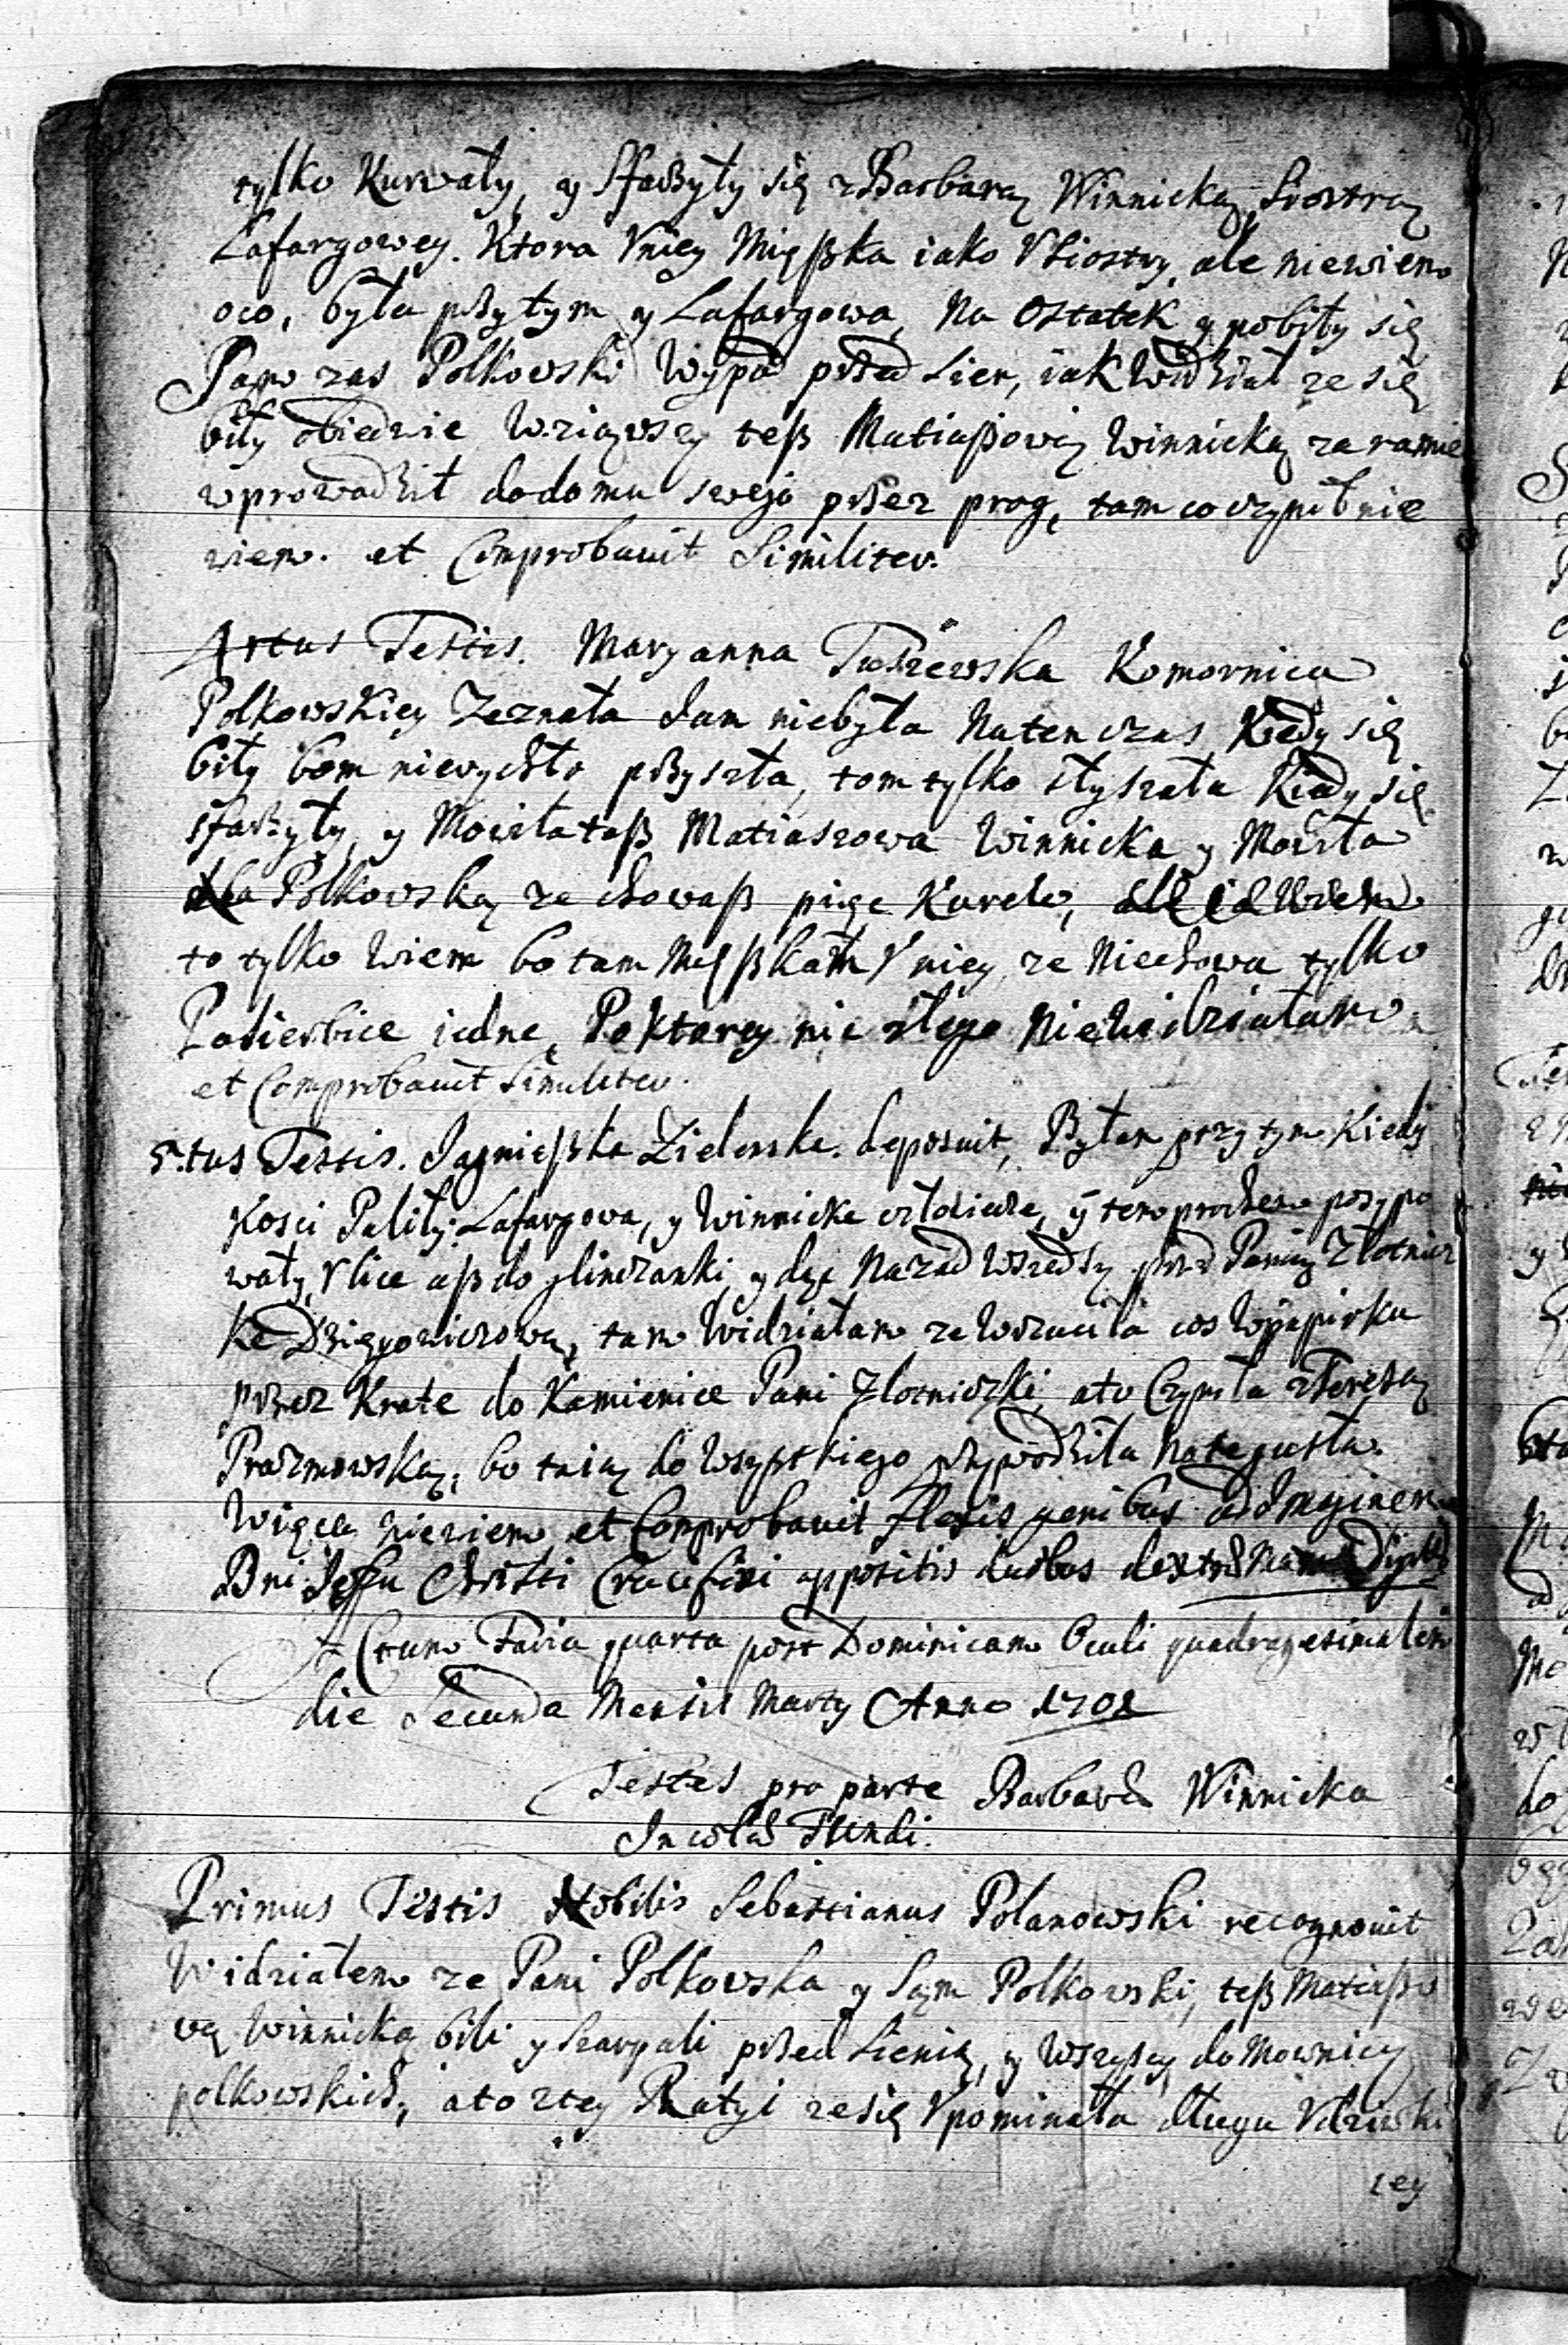 tylko Kurwały, y Swarzyły się z Barbarą Winnicką Siostrą
Lafargowey. Ktora V niey Mięßka iako V Siostry, ale niewiem
oco, była przytym y Lafargowa, Na Ostatek y pobiły się
Pan zas Polkowski Wypad przed Sien, iak Widział ze się
biły obiedwie Wziąwszy teß Matiaßową Winnicką za ramie
wprowadził dodomu swego przez prog, tam co czynił nie
wiem. et Comprobauit Similiter.
4rtus Testis. Maryanna Komornica
Polkowskiey Zeznała Iam niebyła Natenczas Kiedy się
biły bom nierychło przyszła, tom tylko słyszała Kiedy się
swarzyły, y Mowiła teß Matiaszowa Winnicka y Mowiła
Polkowską ze chowaß pięc Kurew, ale ia Wiem
to tylko Wiem bo tam Męßkam V niey ze Niechowa tylko
Pasierbice iedne, Poktorey nic złego Niewidziałam
et Comprobauit Similiter.
5.tus Testis. Jagnießka Zielenska. deposuit, Byłam przy tym Kiedy
Kosci Paliły Lafargowa, y Winnicka y tem prochem posypo
wały Vlice aß do glinczanki, ydąc Nazad Wszedszy przed Panią Złotnicz
ke tam Widziałam ze Wrzuciła cos Wpapirku
przez Krate do Kamienice Pani Złotniczki, ato Czyniła z Teresą
Prazmowską, bo taią do Wszystkiego przywodziła
Więcy niewiem et Comprobauit flexis genibus ad Imaginem
Dni Jesu Christi Crucifixi appositis duobus dextrae Manus Digitis
Actum Feria quarta post Dominicam Oculi quadragesimalem
die Secunda Mensis Marty Anno 1701
Testes pro parte Barbara Winnicka
Incolae Fundi.
Primus Testis Nobilis Sebastianus Polanowski recognouit
Widziałem ze Pani Polkowska y Sam Polkowski, teß Matiaßo
wą Winnicką bili y szarpali przed Sienią, y Wszyscy domownicy
polkowskich, ato ztey Ratyi zesię Vpominała długu